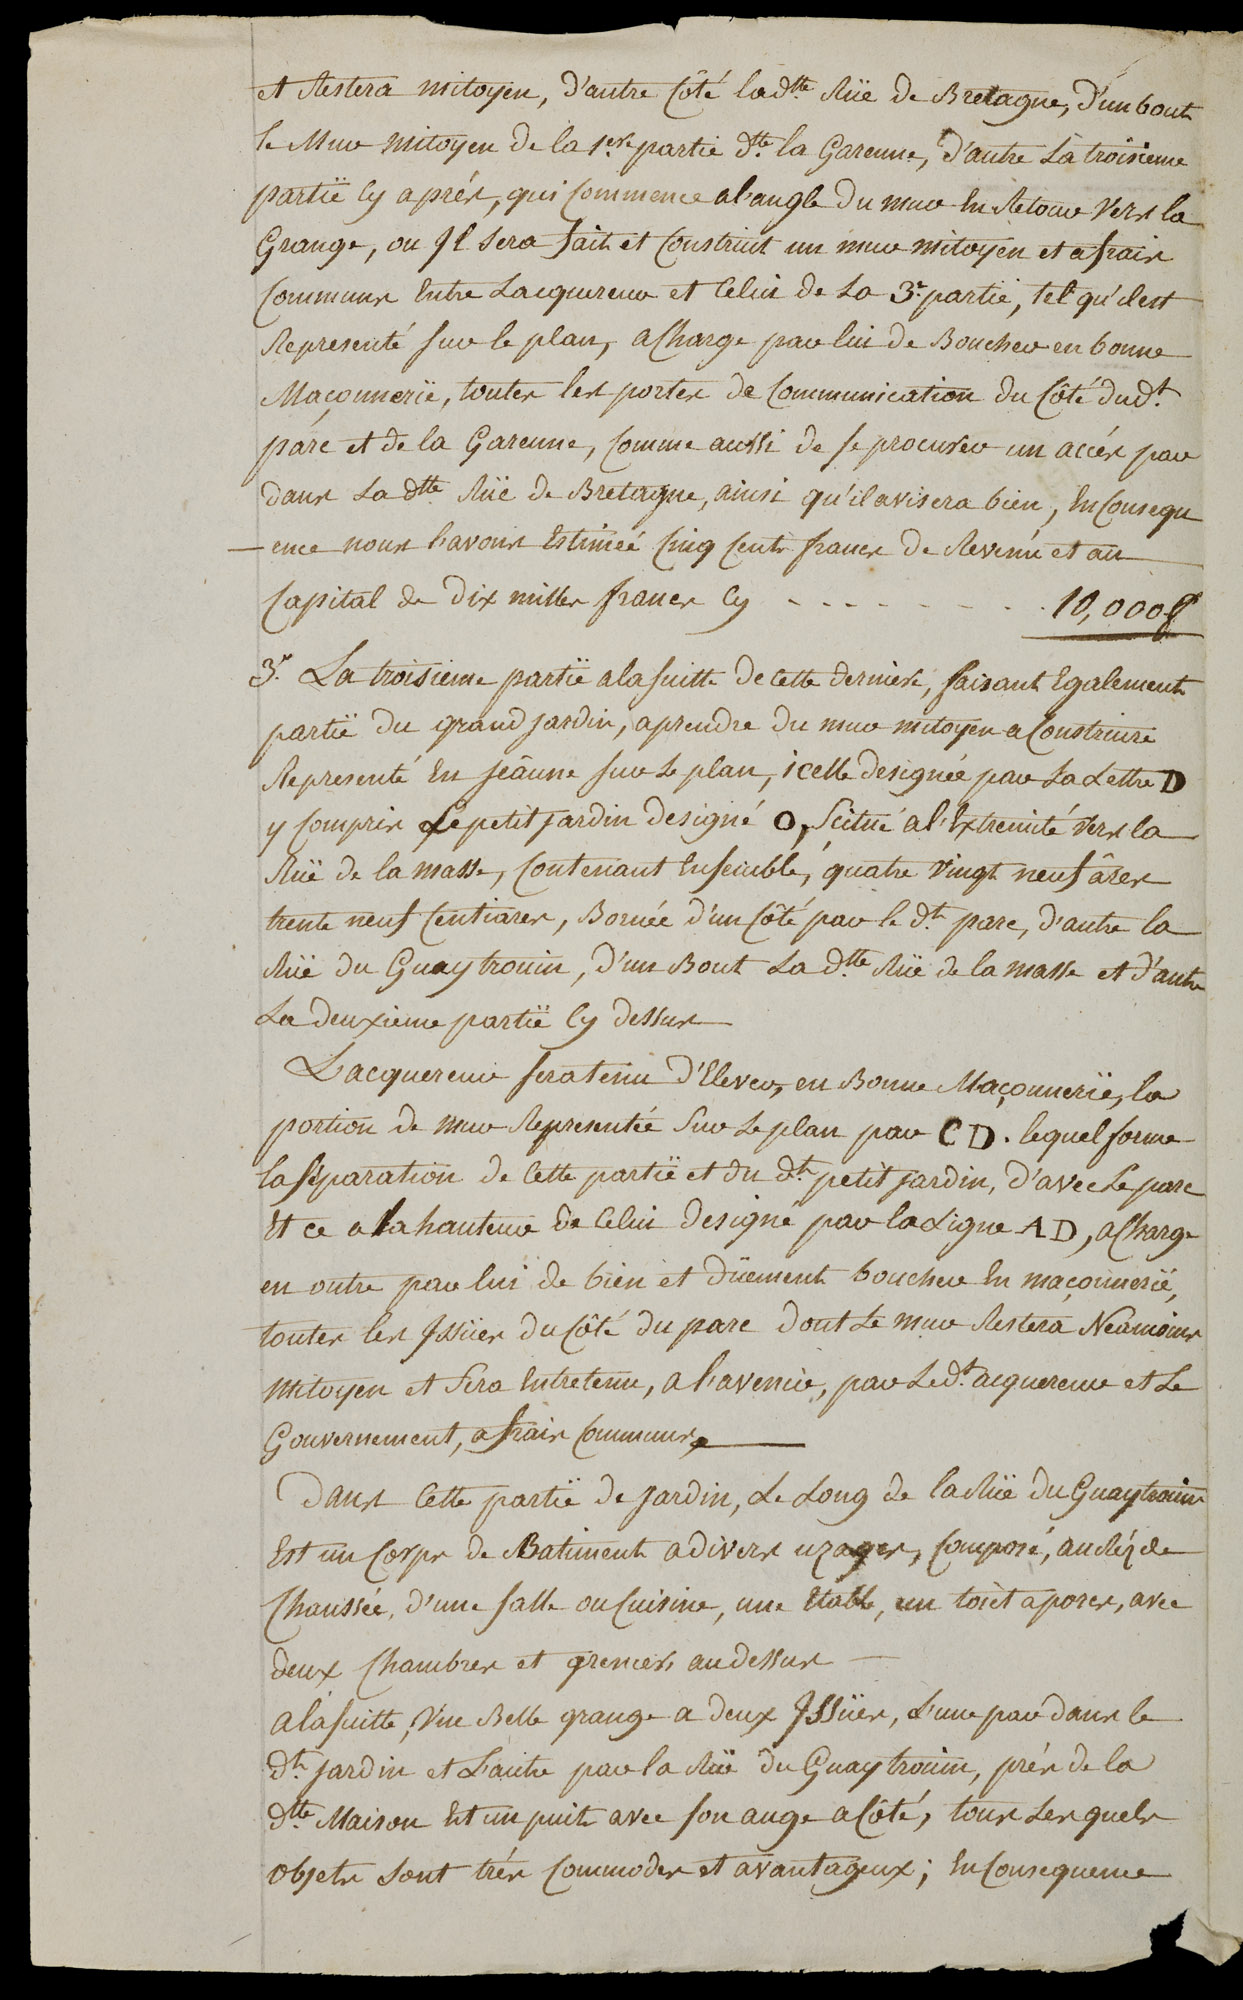 et Restera mitoyen, d'autre Côté lad.tte Rüe de Bretagne, d'un bout
le Mur mitoyen de la 1ere partie d.te la Garenne, d'autre La troisieme
partïe Cy après, qui Commence a l'angle du mur En Retour vers la
Grange, ou Jl Sera fait et Construit un mur mitoyen et a frais
Communs Entre Lacquereur et Celui de La 3.e partie, tel qu'il est
Representé sur le plan, a Charge par lui de Boucher en bonne
Maçonnerïe, toutes les portes de Communication du Côté dud.t
parc et de la Garenne, Comme aussi de se procurer un accés par
dans La d.tte Rüe de Bretagne, ainsi qu'il avisera bien, En Consequ
-ence nous l'avons Estimeé Cinq Cents francs de Revenu et au
Capital de Dix milles francs Cy - - - - - - - - 10,000f
3.e La troisieme partïe a la suitte de Cette derniere, faisant Egalement
partïe du grand Jardin, a prendre du mur mitoyen a Construire
Representé En jeâune sur Le plan, icelle designée par La Lettre D
y Compris Le petit jardin designé O, Scitué a l'Extremité vers la
Rüe de la masse, Contenant Ensemble, quatre vingt neuf âres
trente neuf Centiares, Bornée d'un Côté par le d.t parc, d'autre la
Rüe du Guaytrouin, d'un Bout La d.tte Rüe de la masse et d'autre
La deuxieme partïe Cy dessus
Lacquereur sera tenu d'Elever, en Bonne Maçonnerïe, la
portion de mur Representée Sur Le plan par C D. lequel forme
la Separation de Cette partïe et du d.t petit jardin, d'avec Le parc
Et ce a la hauteur de Celui designé par la Ligne A D, a Charge
en outre par lui de bien et düement boucher En maçonnerïé,
toutes les Jssües du Côté du parc dont Le mur Restera Neamoins
mitoyen et Sera Entretenu, a l'avenir, par Led.t acquereur et Le
Gouvernement, a frais Communs,
Dans Cette partïe de jardin, Le Long de la Rüe du Guaytrouin
Est un Corps de Batiment a divers uzages, Composé, au Réz de
Chaussée, d'une salle ou Cuisine, une Etable, un toict a porcs, avec
deux Chambres et greniers au dessus
a la suitte, Une Belle grange a deux Jssües, L'une par dans le
d.t jardin et L'autre par la Rüe du Guaytrouin, prés de la
d.tte Maison Est un puits avec son auge a Côté, tous Les quels
objets Sont trés Commodes et avantageux; En Consequence